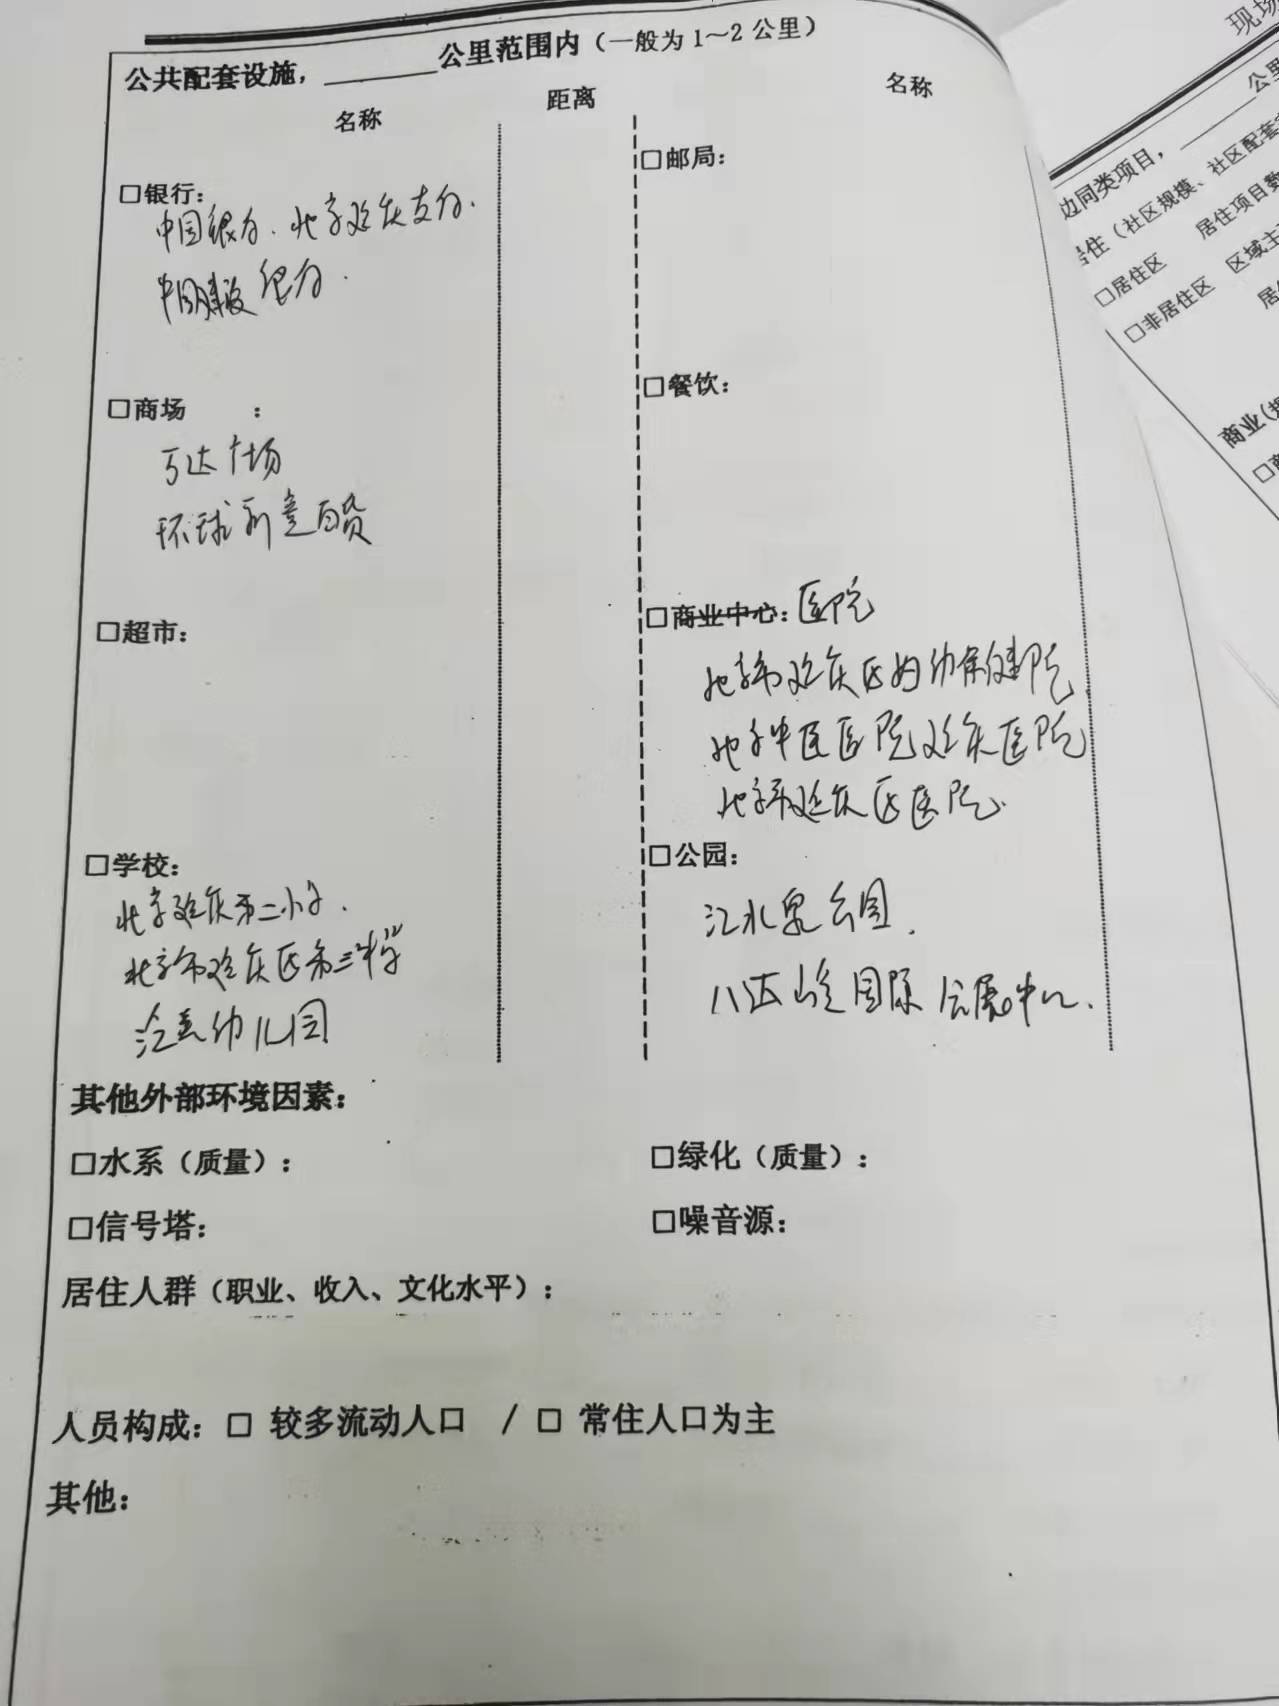 公共配套设施，________公里范围内（一般为1～2公里）
名称 距离 名称
□银行：
中国银行．北京延庆支行．
中国建设银行．
□商场 ：
万达广场
环球新意百货
□超市：
□学校：
北京延庆第二小学．
北京市延庆区第三中学
幼儿园
□邮局：
□餐饮：
□商业中心：医院
北京市延庆区妇幼保健院
北京中医医院延庆医院
北京市延庆区医院．
□公园：
江水泉公园．
八达岭国际会展中心．
其他外部环境因素：
□水系（质量）： □绿化（质量）：
□信号塔： □噪音源：
居住人群（职业、收入、文化水平）：
人员构成：□ 较多流动人口 / □ 常住人口为主
其他：
现场
边同类项目，________公里
居住（社区规模、社区配套
□居住区 居住项目数
□非居住区 区域主
居
商业（
□商